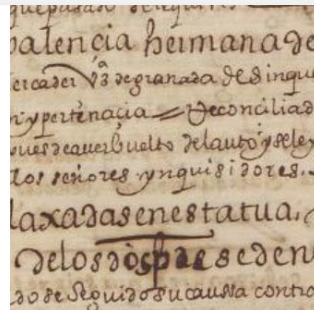 que pasado de
palençia hermana de
ercader vª de granada de dinque
n y pertenaçia = Reconciliad
pues de averbuelto del auto y se le y
los señores ynquisidores.
laxadas en estatua.
de los dos se den
do se seguido su caussa contra